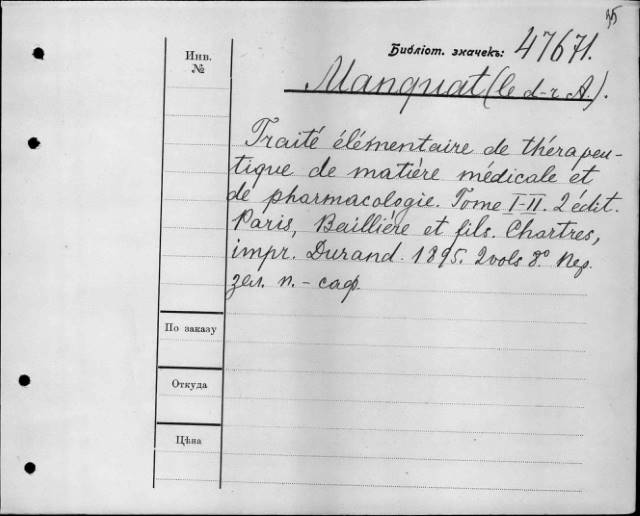 35
Библіот. значекъ: 47671.
Инв.
№
Manquat (le d-r A).
Traité élémentaire de thérapeu-
tique de matière médicale et
de pharmacologie. Tome I-II. 2 édit.
Paris, Baillière et fils. Chartres,
impr. Durand. 1895. 2 vols 8.º Пер.
зел. п. - саф.
По заказу
Откуда
Цѣна